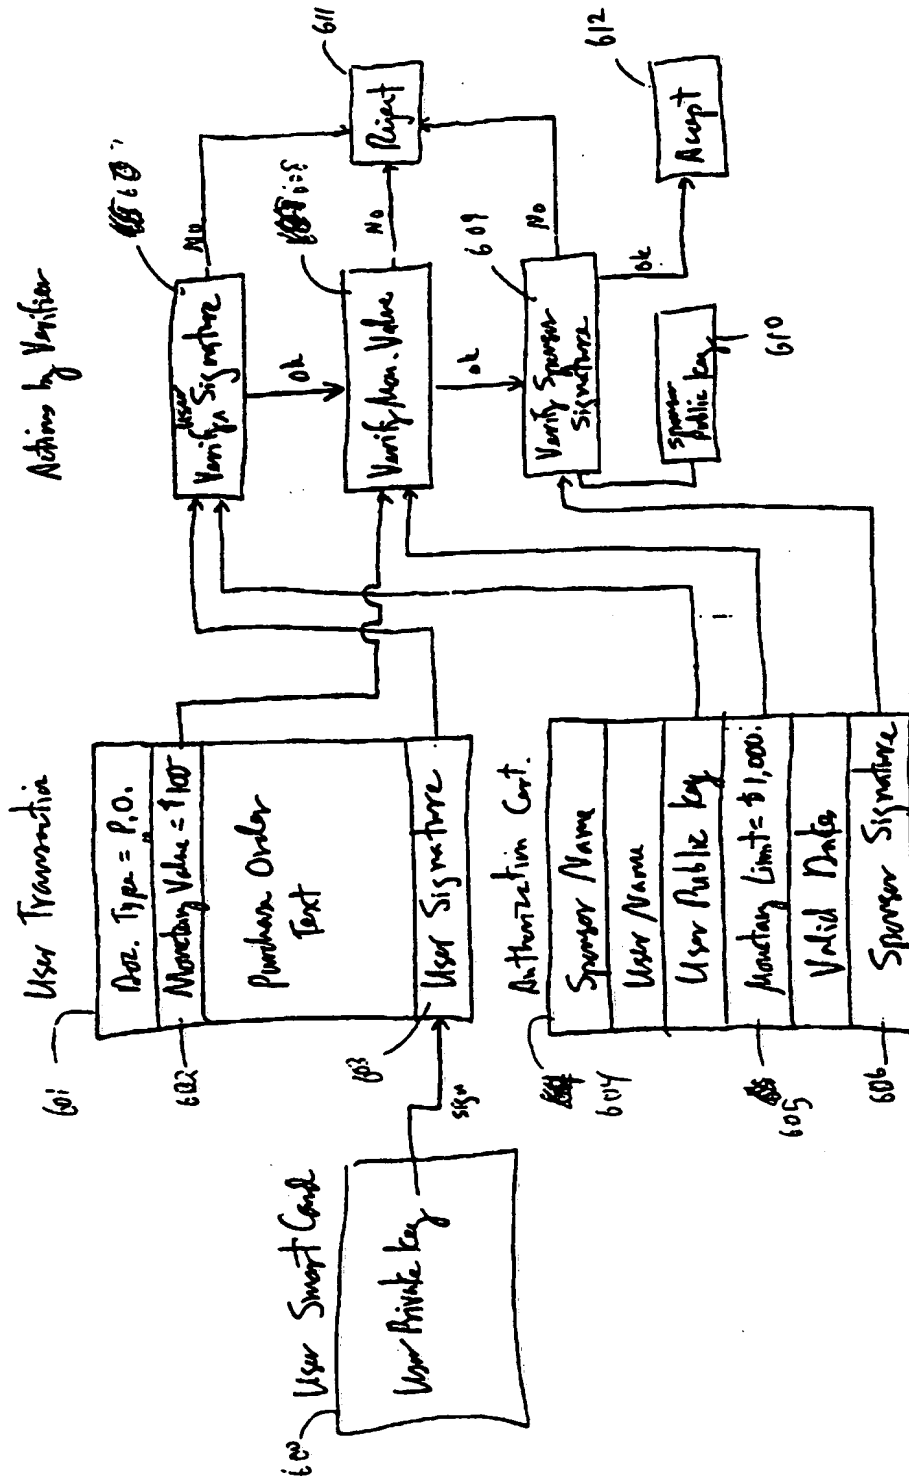 User Smart Card
User Private Key
sign
601
User Transaction
Doc. Type = P.O.
602
Monetary Value = $100
Purchase Order
Text
603
User Signature
604
Authorization Cert.
Sponsor Name
User Name
User Public Key
605
Monetary Limit = $1,000.
Valid Dates
606
Sponsor Signature
Actions by Verifier
Verify User Signature
No
Ok
Verify Mon. Value
No
Ok
609
Verify Sponsor
Signature
No
Ok
Sponsor
Public Key
610
611
Reject
612
Accept